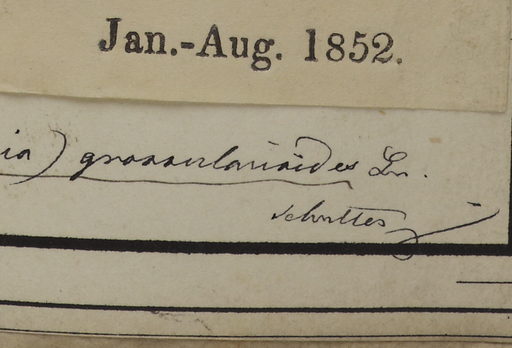 Jan.-Aug. 1852.
ia) grossularioides Ln.
Schultes